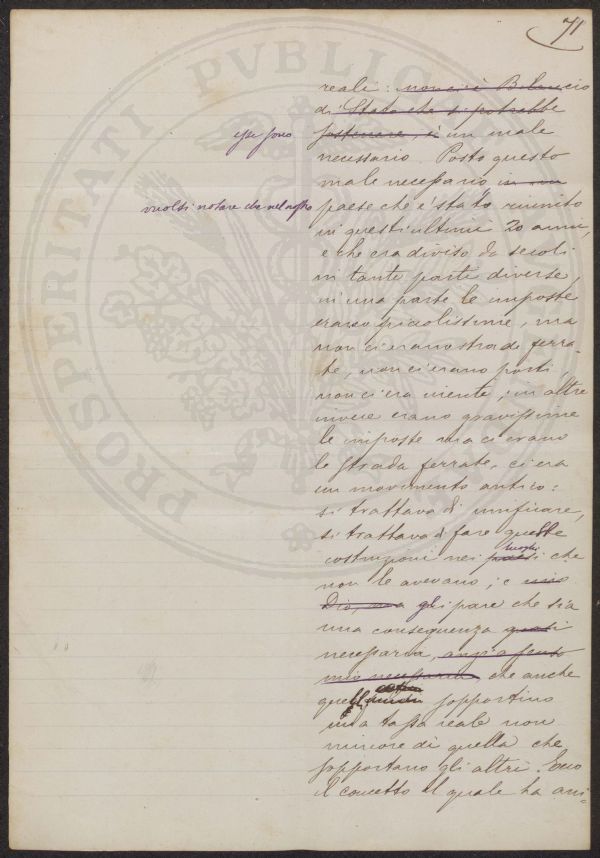 71
reali: non ci è Bilancio
di Stato che si potrebbe
esse sono
sostenere, è un male
necessario. Posto questo
male necessario in un
vuolsi notare che nel nostro
paese che è stato riunito
in questi ultimi 20 anni,
e che era diviso da secoli
in tante parti diverse,
in una parte le imposte
erano piccolissime, ma
non ci erano strade ferra-
te, non ci erano porti,
non ci era niente; in altre
invece erano gravissime
le imposte ma ci erano
le strade ferrate, ci era
un movimento antico:
si trattava di unificare,
si trattava di fare quelle
luoghi
costruzioni nei paesi che
non le avevano; e mio
Dio, ma gli pare che sia
una conseguenza quasi
necessaria, anzi a senso
mio necessaria che anche
quelli sopportino
una tassa reale non
minore di quella che
sopportano gli altri. Ecco
il concetto il quale ha ani-
PROSPERITATI PVBLICAE